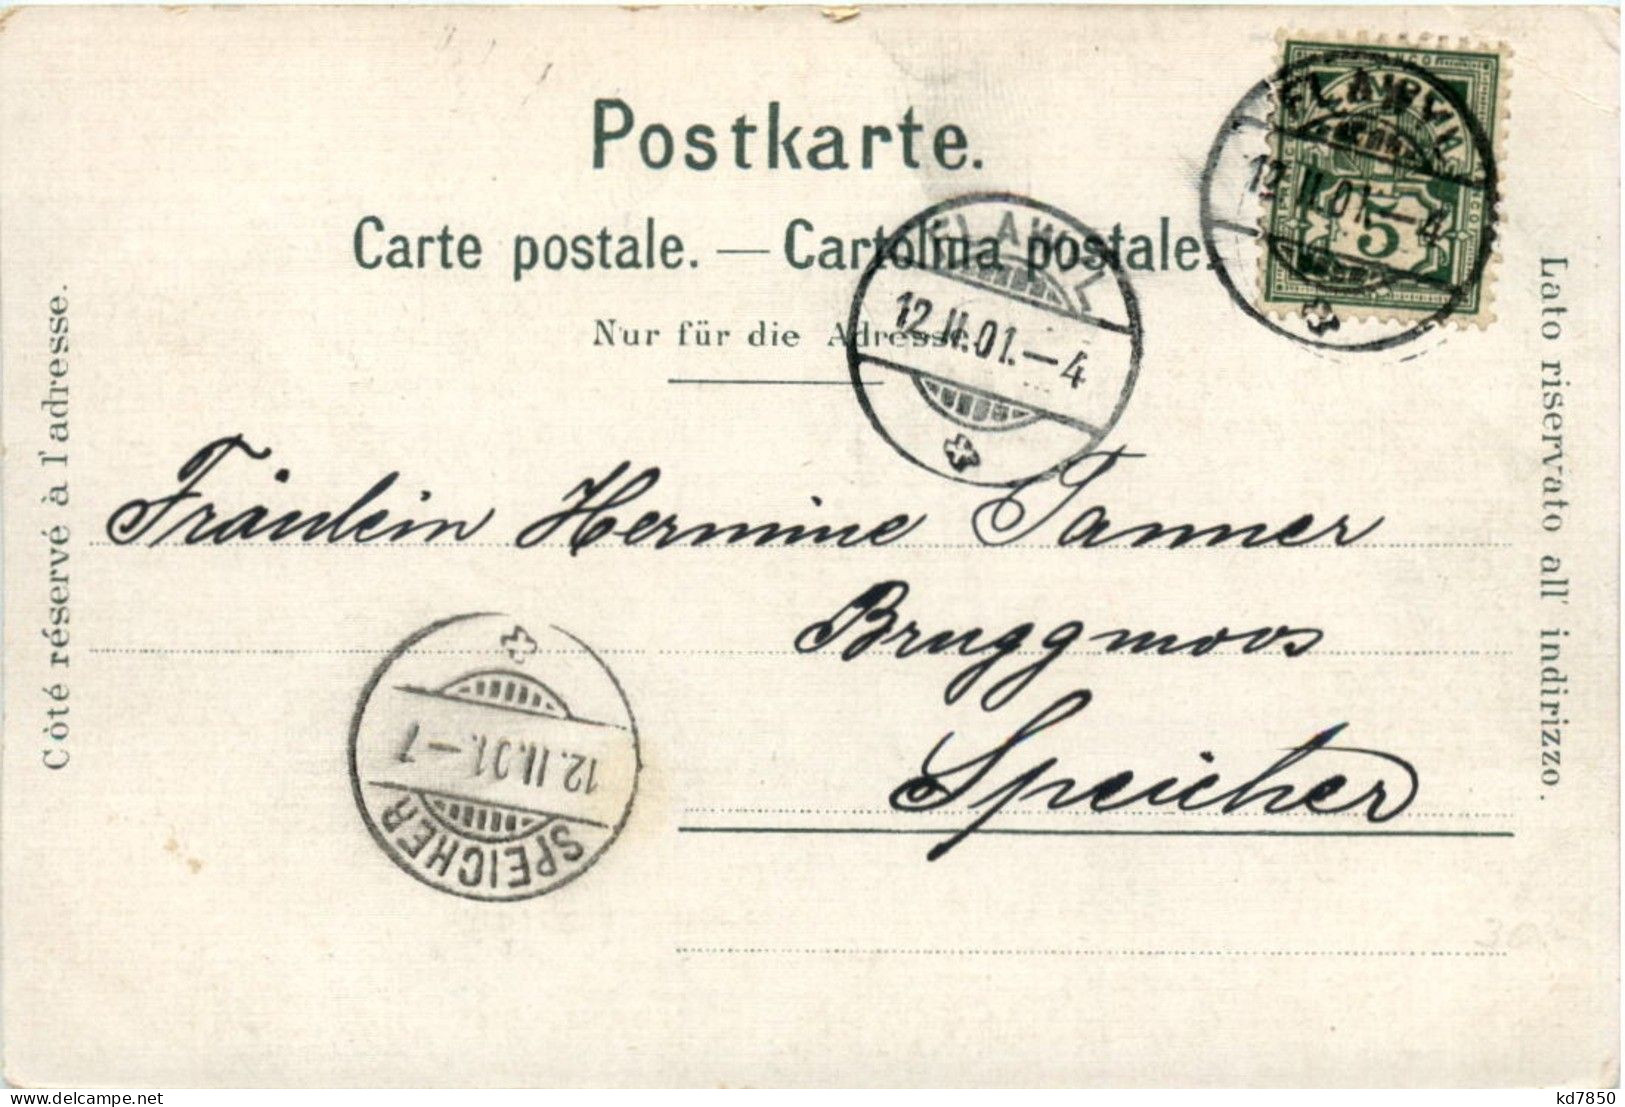 Postkarte.
Carte postale. — Cartolina postale.
Nur für die Adresse.
FLAWIL
12.II.01.—4
FLAWIL
12.II.01.—4
5
Côté réservé à l'adresse.
Lato riservato all' indirizzo.
Fräulein Hermine Tanner
Bruggmoos
Speicher
SPEICHER
12.II.01.—7
kd7850